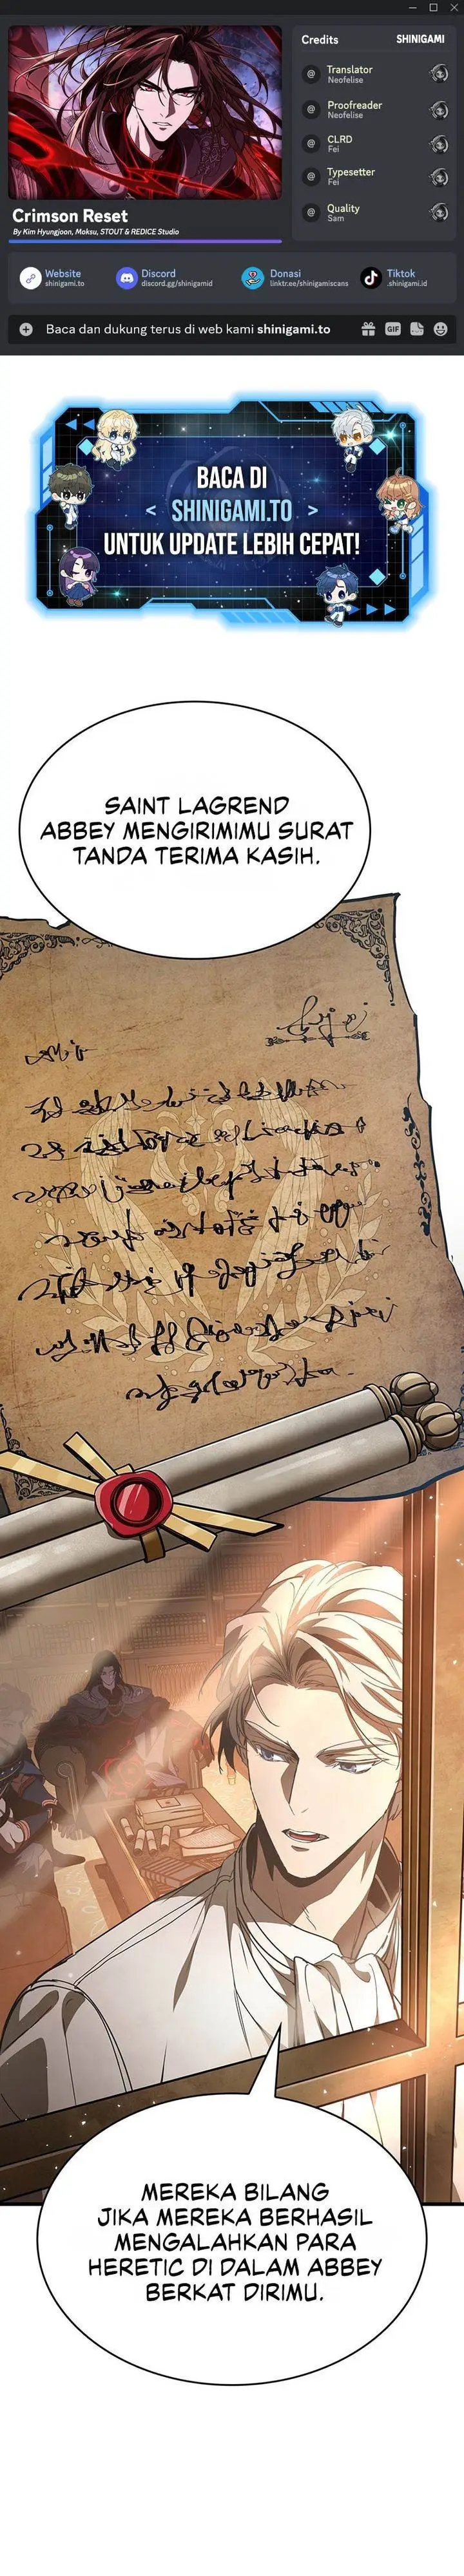 Crimson Reset
By Kim Hyungjoon, Moksu, STOUT & REDICE Studio
Credits
SHINIGAMI
@
Translator
Neofelise
@
Proofreader
Neofelise
@
CLRD
Fei
@
Typesetter
Fei
@
Quality
Sam
Website
shinigami.to
Discord
discord.gg/shinigamid
Donasi
linktr.ee/shinigamiscans
Tiktok
.shinigami.id
Baca dan dukung terus di web kami shinigami.to
GIF
BACA DI
< SHINIGAMI.TO >
UNTUK UPDATE LEBIH CEPAT!
SAINT LAGREND
ABBEY MENGIRIMIMU SURAT
TANDA TERIMA KASIH.
MEREKA BILANG
JIKA MEREKA BERHASIL
MENGALAHKAN PARA
HERETIC DI DALAM ABBEY
BERKAT DIRIMU.